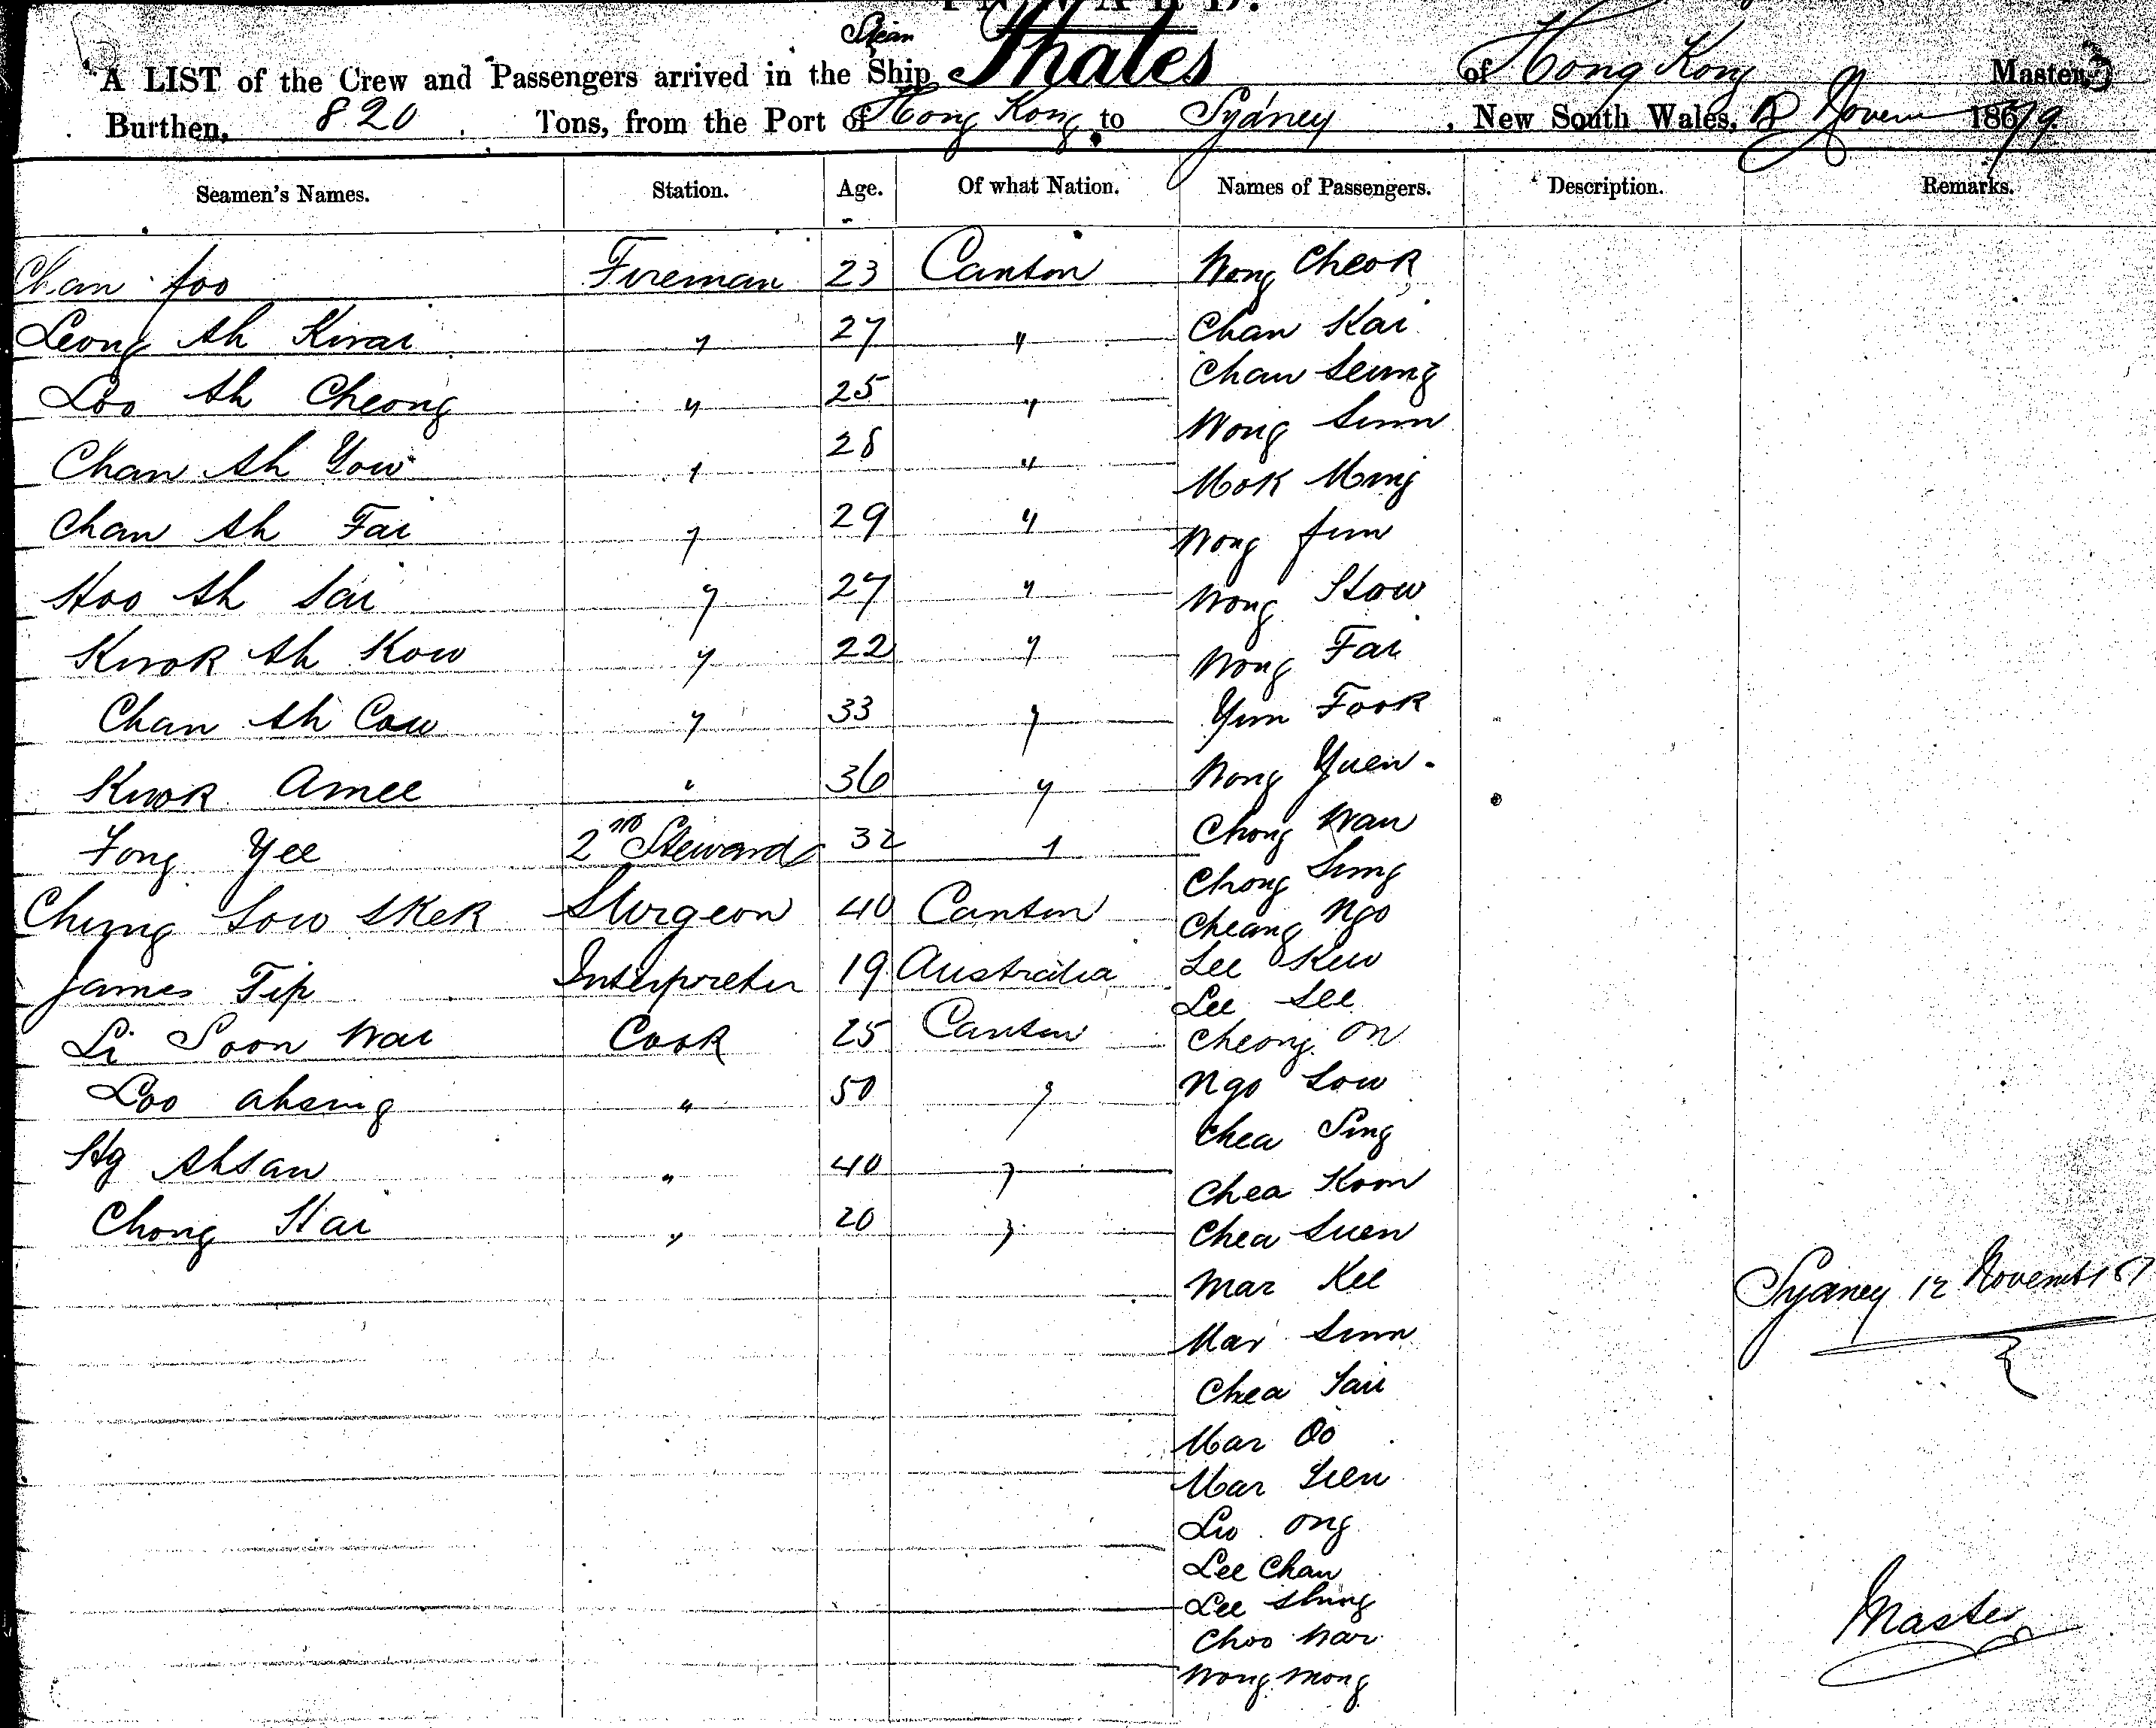 Steam
"A LIST of the Crew and Passengers arrived in the Ship Thales of Hong Kong Master,
Burthen, 820 Tons, from the Port of Hong Kong to Sydney, New South Wales, 12 Novem 1879.
Seamen's Names. Station. Age. Of what Nation. Names of Passengers. Description. Remarks.
Chan foo Fireman 23 Canton Wong Cheok
Leong Ah Kwai " 27 " Chan Kai
Chan Seung
Loo Ah Cheong " 25 "
Wong Sinn
Chan Ah Yow " 28 "
Mok Ming
Chan Ah Fai " 29 " Wong
Hoo Ah Sai " 27 " Wong How
Kwok Ah Kow " 22 " Wong Fai
Chan Ah Cow " 33 " Yim Fook
Kwok Amee " 36 " Wong Yuen
Fong Yee 2nd Steward 32 " Chong Wan
Chong Sing
Chung Sow Skek Sturgeon 40 Canton Cheang Ngo
James Tip Interpreter 19 Australia Lee Kew
Lee See
Li Soon Wai Cook 25 Canton Cheong On
Loo Ahsing " 50 " Ngo Sow
Chea Sing
Hg Ahsan " 40 "
Chea Koon
Chong Kai " 20 " Chea Suen
Mar Kee
Sydney 12 Novemb 187
Mar Sinn
Chea
Mar Oo
Mar
Ong
Lee Chan
Lee Shing
Choo War
Master
Wong Mong